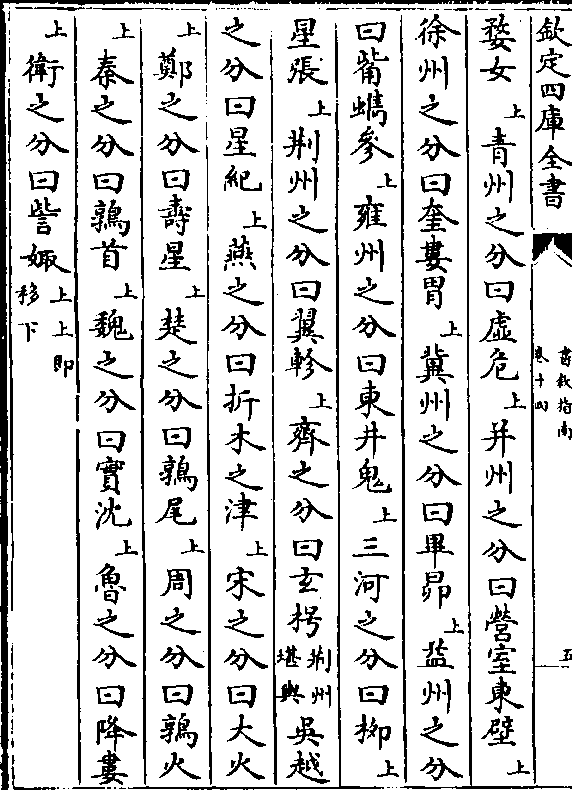 欽定四庫全書
書敘指南
卷十四
五
婺女上青州之分曰虛危上并州之分曰營室東壁上
徐州之分曰奎婁胃上冀州之分曰畢昴上益州之分
曰觜蠵參上雍州之分曰東井鬼上三河之分曰柳上
星張上荆州之分曰翼軫上齊之分曰玄枵荆州堪輿吳越
之分曰星紀上燕之分曰折木之津上宋之分曰大火
上鄭之分曰壽星上楚之分曰鶉尾上周之分曰鶉火
上秦之分曰鶉首上魏之分曰實沈上魯之分曰降婁
上衛之分曰訾娵上上即移下